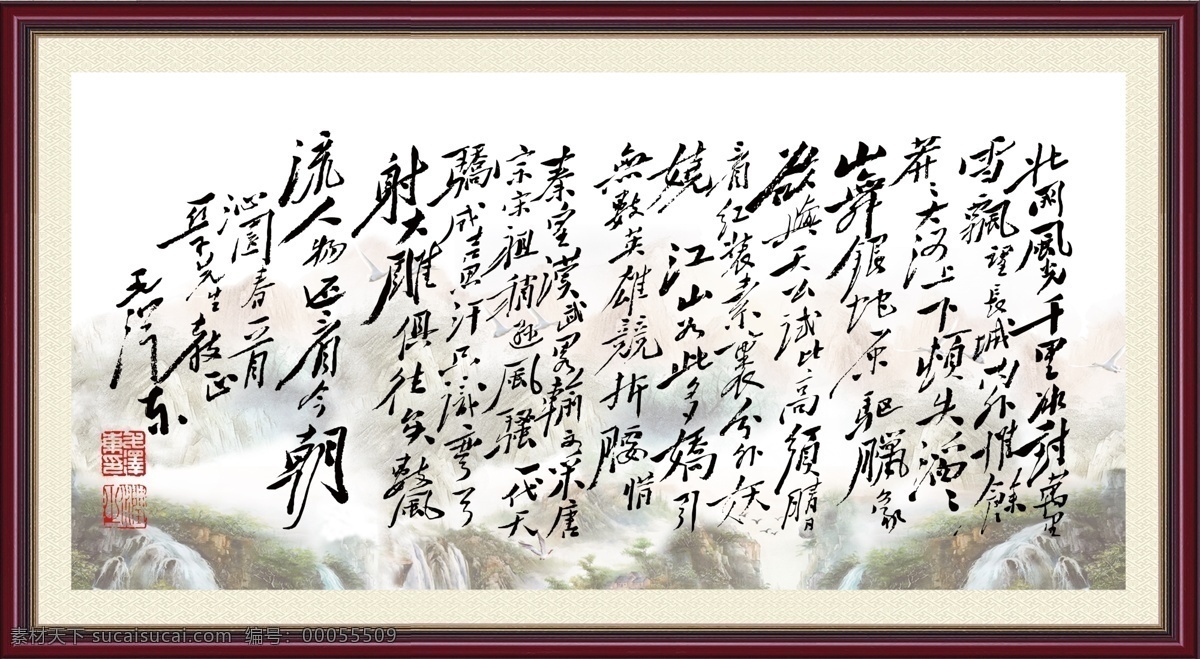 北國風光千里冰封萬里
雪飄望長城内外惟餘
莽〻大河上下頓失滔〻
山舞銀蛇原驅臘象
欲與天公試比高須晴日
看紅裝素裹分外妖
嬈 江山如此多嬌引
無數英雄競折腰惜
秦皇漢武畧輸文采唐
宗宋祖稍遜風騷一代天
驕成吉思汗只識彎弓
射大雕俱往矣數風
流人物还看今朝
沁園春一首
亞子先生教正
毛澤東
毛澤東印
素材天下 sucaisucai.com 编号：00055509